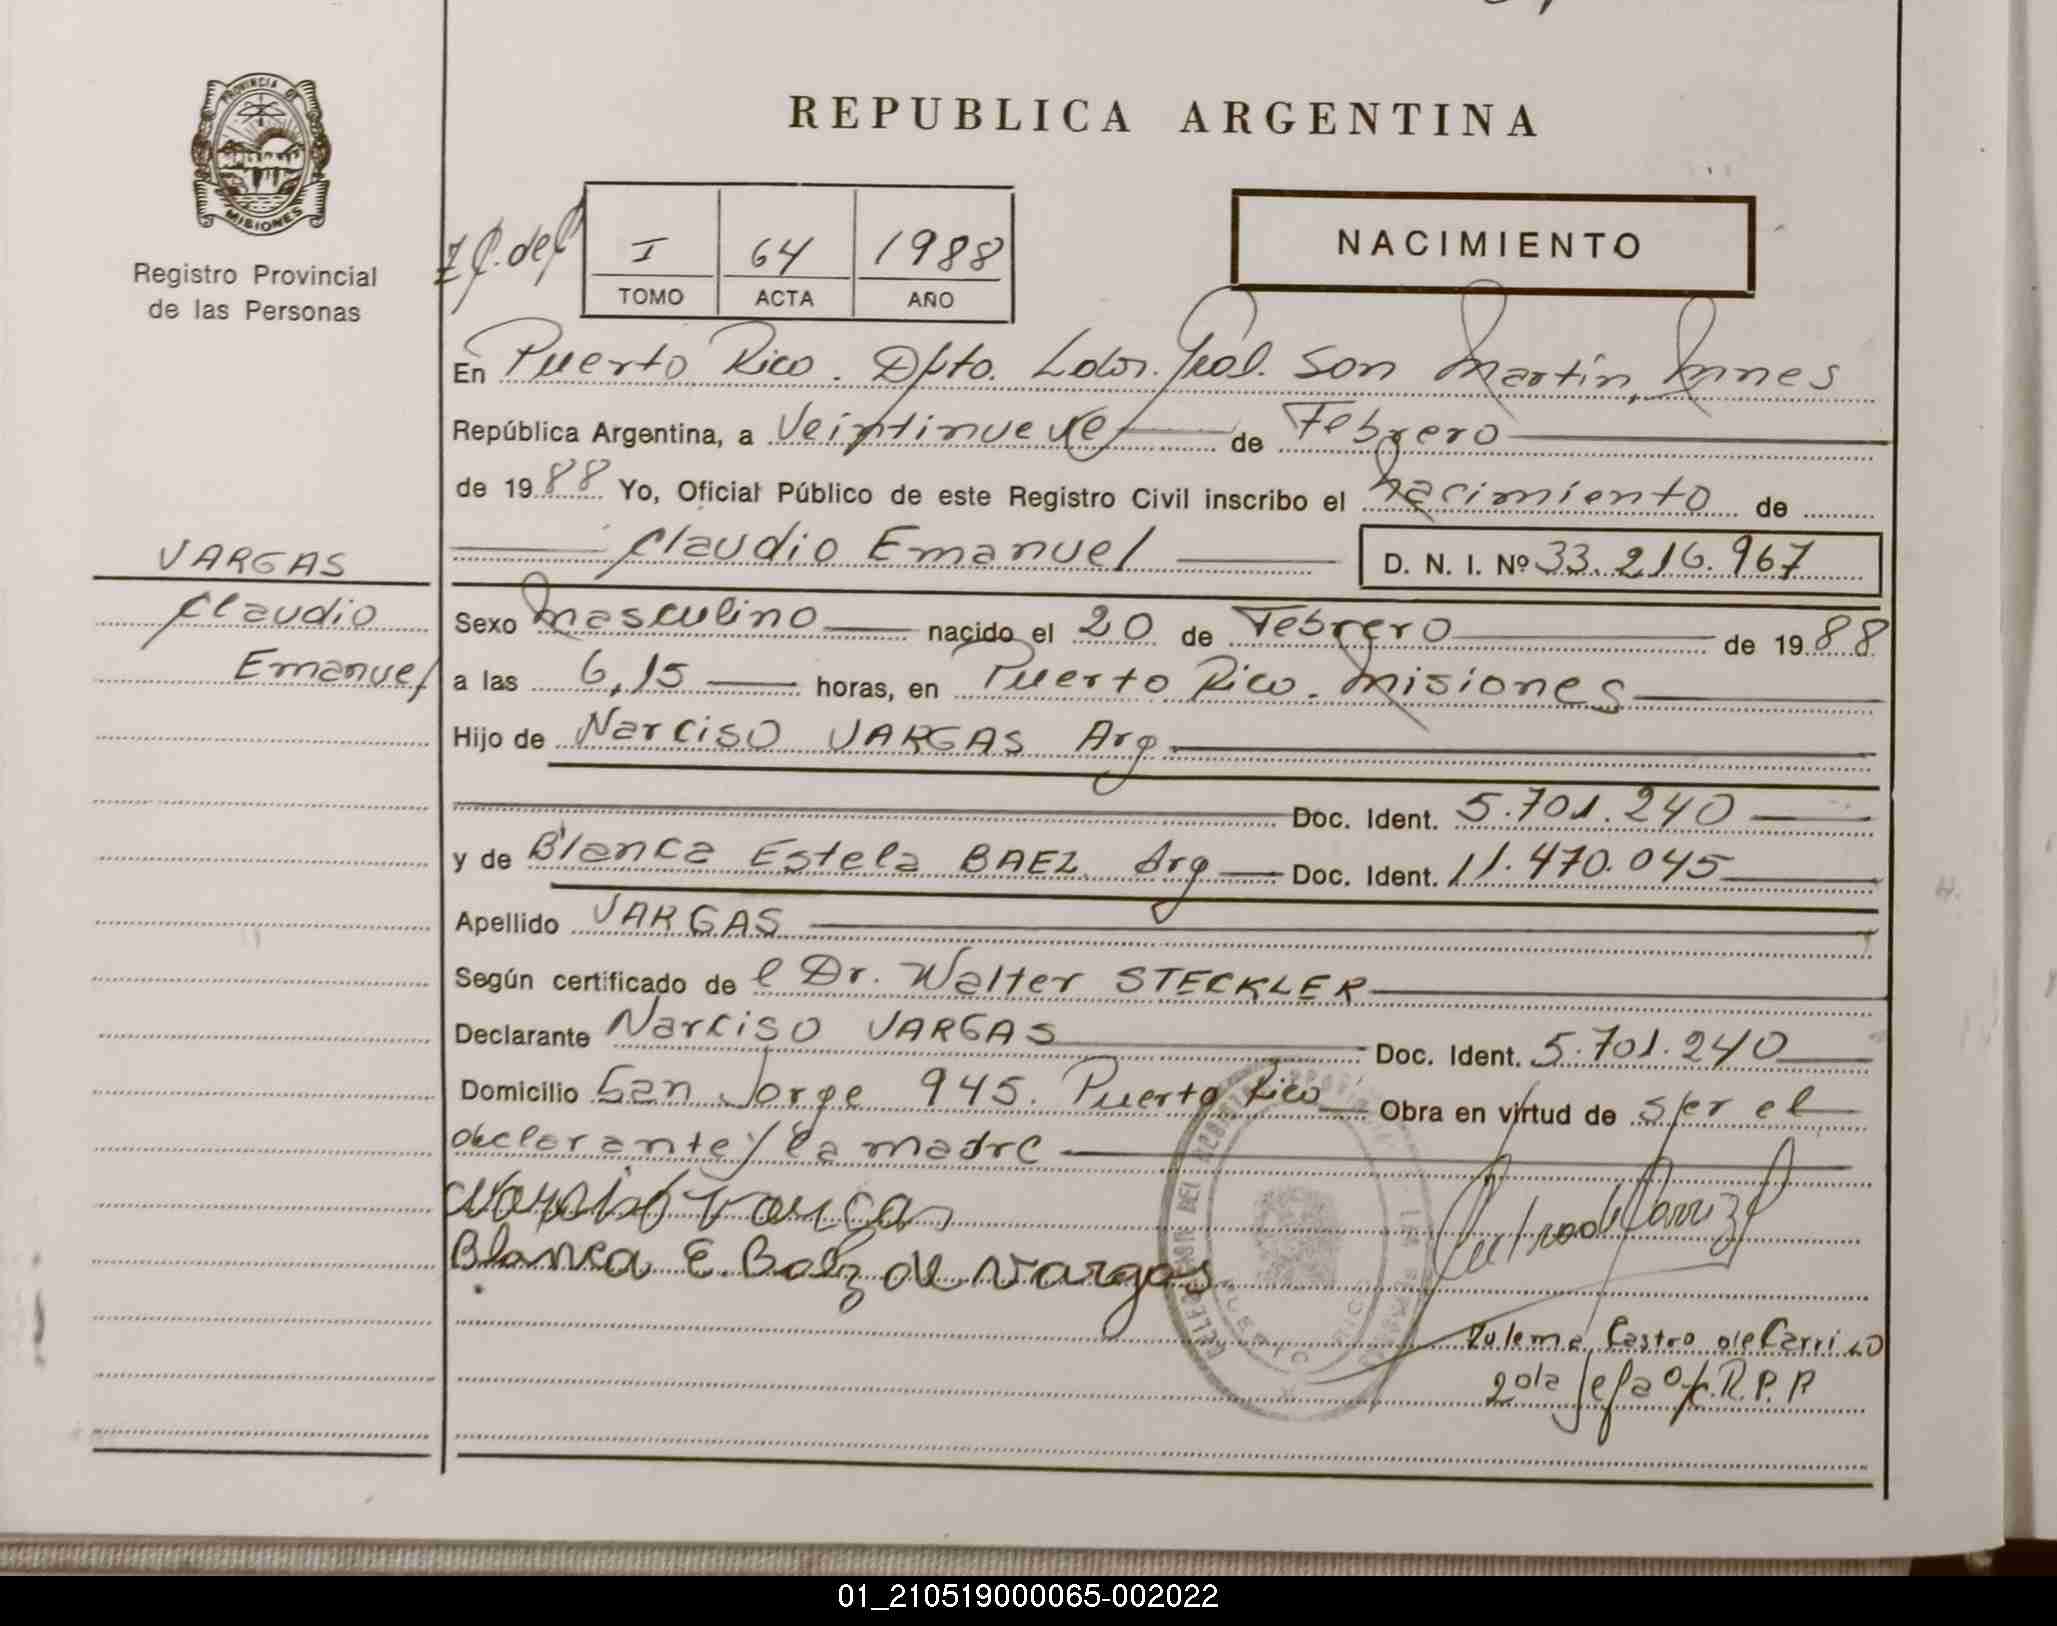 PROVINCIA DE
MISIONES
Registro Provincial
de las Personas
VARGAS
Claudio
Emanuel
REPUBLICA ARGENTINA
I 64 1988
TOMO ACTA AÑO
NACIMIENTO
En Puerto Rico. Dpto. Ldor. Gral. San Martín, Mnes
República Argentina, a Veintinueve de Febrero
de 1988 Yo, Oficial Público de este Registro Civil inscribo el nacimiento de
Claudio Emanuel D. N. I. Nº 33.216.967
Sexo masculino nacido el 20 de Febrero de 1988
a las 6,15 horas, en Puerto Rico. Misiones
Hijo de Narciso VARGAS Arg
Doc. Ident. 5.701.240
y de Blanca Estela BAEZ Arg Doc. Ident. 11.470.045
Apellido VARGAS
Según certificado de l Dr. Walter STECKLER
Declarante Narciso VARGAS Doc. Ident. 5.701.240
Domicilio San Jorge 945. Puerto Rico Obra en virtud de ser el
declarante y la madre
Narciso Vargas
Blanca E. Baez de Vargas
Zulema Castro de Carrizo
2da Jefa Of. R.P.P
01_210519000065-002022